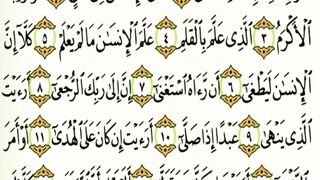 ٱلْأَكْرَمُ ٣ ٱلَّذِى عَلَّمَ بِٱلْقَلَمِ ٤ عَلَّمَ ٱلْإِنسَٰنَ مَا لَمْ يَعْلَمْ ٥ كَلَّآ إِنَّ
ٱلْإِنسَٰنَ لَيَطْغَىٰٓ ٦ أَن رَّءَاهُ ٱسْتَغْنَىٰٓ ٧ إِنَّ إِلَىٰ رَبِّكَ ٱلرُّجْعَىٰٓ ٨ أَرَءَيْتَ
ٱلَّذِى يَنْهَىٰ ٩ عَبْدًا إِذَا صَلَّىٰٓ ١٠ أَرَءَيْتَ إِن كَانَ عَلَى ٱلْهُدَىٰٓ ١١ أَوْ أَمَرَ